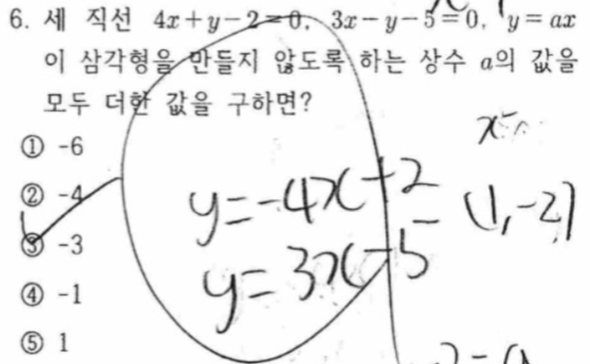 6. 세 직선 4x+y-2=0, 3x-y-5=0, y=ax
이 삼각형을 만들지 않도록 하는 상수 a의 값을
모두 더한 값을 구하면?
① -6
② -4
③ -3
④ -1
⑤ 1
y=-4x+2
y=3x-5
= (1,-2)